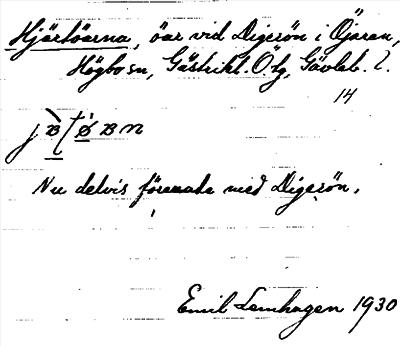 Hjärtöarna, öar vid Digerön i Öjaren,
Högbo sn, Gästrikl. Ö. tg, Gävleb. l.
14
Nu delvis förenade med Digerön.
Emil Lemhagen 1930